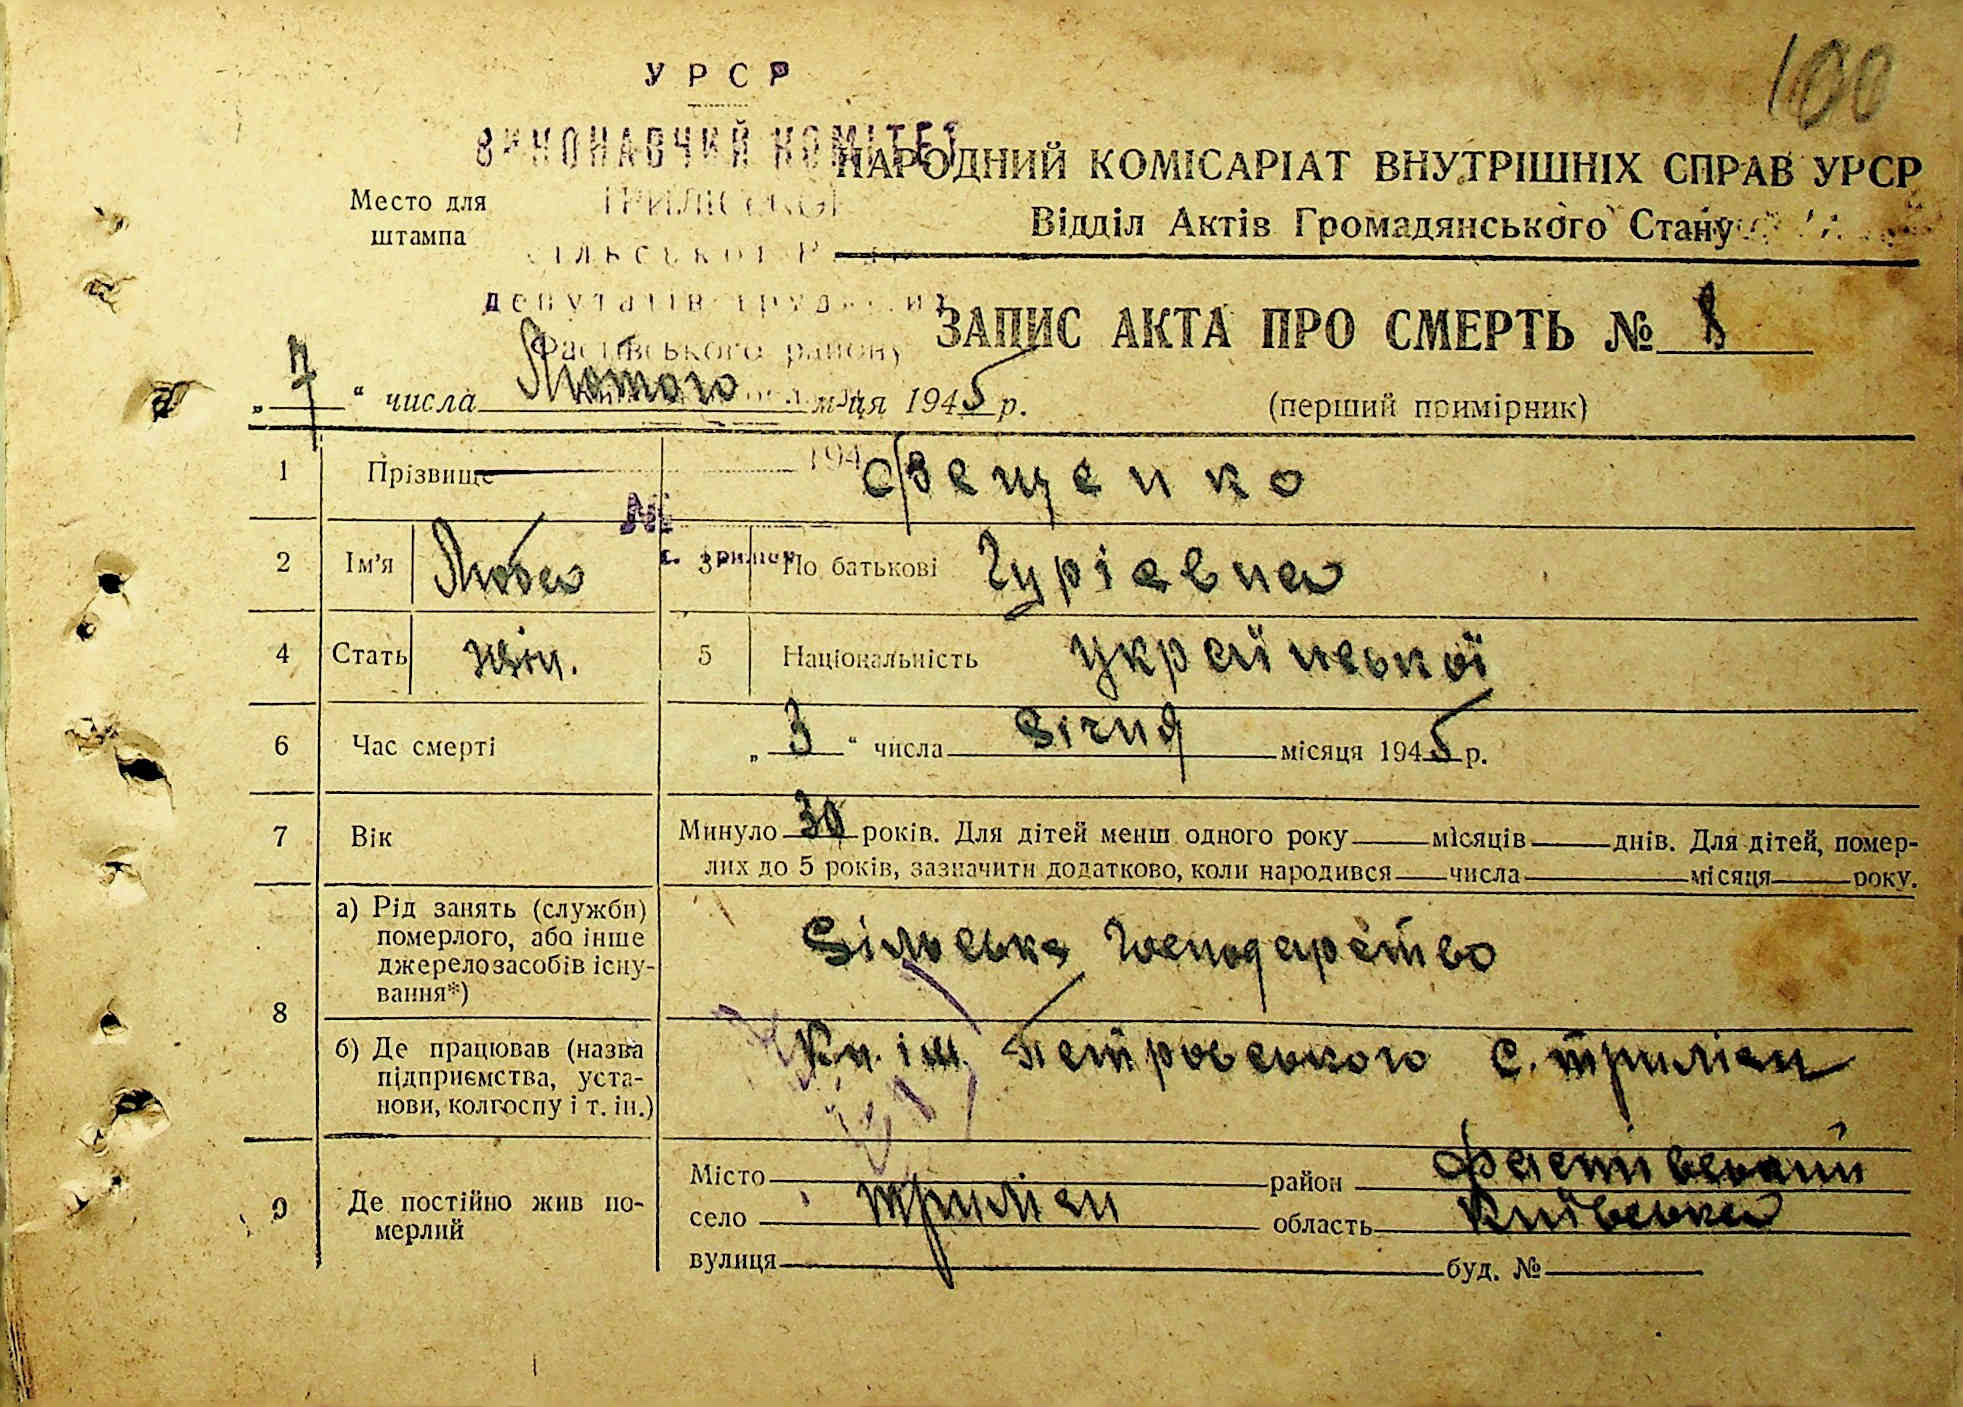 100
УРСР
ВИКОНАВЧИЙ КОМІТЕТ
НАРОДНИЙ КОМІСАРІАТ ВНУТРІШНІХ СПРАВ УРСР
Место для штампа
Відділ Актів Громадянського Стану
сільської Ради
депутатів трудящих
Фастівського району
ЗАПИС АКТА ПРО СМЕРТЬ № 8
„7“ числа Лютого м-ця 1945 р.
(перший примірник)
194
1 Прізвище Фещенко
№
2 Ім'я Люба 3 По батькові Гуріевна
4 Стать жін. 5 Національність української
6 Час смерті „3“ числа Січня місяця 1945 р.
7 Вік Минуло 30 років. Для дітей менш одного року місяців днів. Для дітей, помер-
лих до 5 років, зазначити додатково, коли народився числа місяця року.
8 а) Рід занять (служби)
померлого, або інше
джерело засобів існу-
вання*)
Сільське Господарство
б) Де працював (назва
підприємства, уста-
нови, колгоспу і т. ін.)
Кп. ім. Петровського С. Триліси
9 Де постійно жив по-
мерлий
Місто район Фастівський
село Триліси область Київська
вулиця буд. №